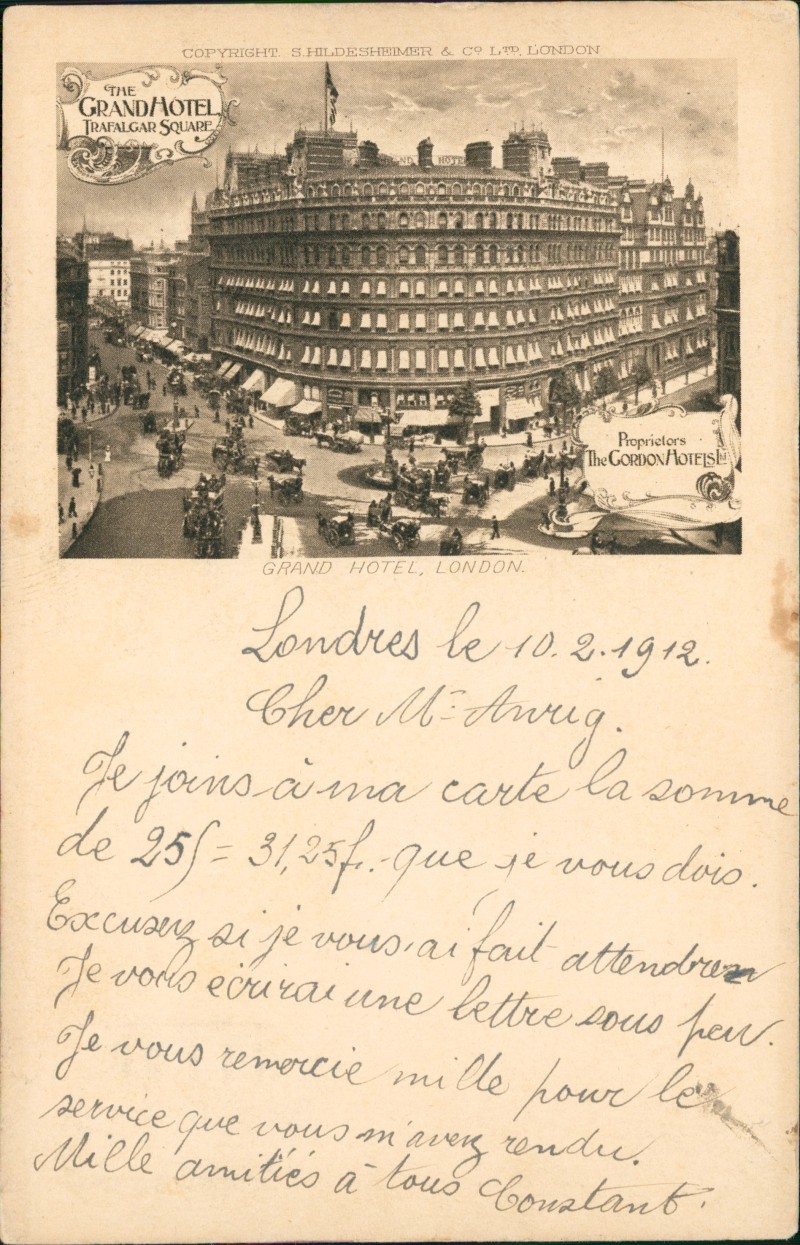 COPYRIGHT. S. HILDESHEIMER & Co LTD, LONDON
THE
GRAND HOTEL
TRAFALGAR SQUARE
GRAND HOTEL
Proprietors
The GORDON HOTELS Ltd
GRAND HOTEL, LONDON.
Londres le 10.2.1912.
Cher Mr Anrig.
Je joins à ma carte la somme
de 25s = 31,25f. que je vous dois.
Excusez si je vous ai fait attendre
Je vous écrirai une lettre sous peu.
Je vous remercie mille pour le
service que vous m'avez rendu.
Mille amitiés à tous Constant.